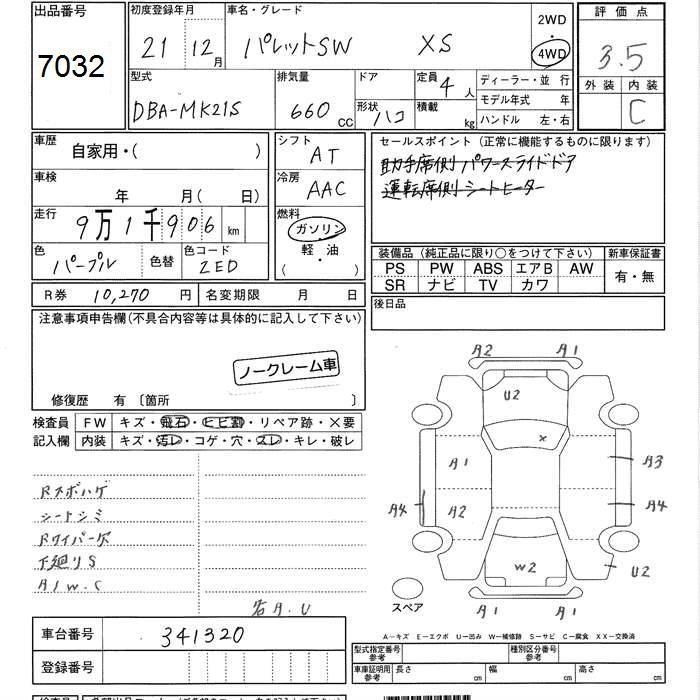 出品番号 初度登録年月 車名・グレード 2WD 評価点
7032 21 12月 パレットSW XS 4WD 3.5
型式 排気量 ドア 定員 4人 ディーラー・並行 外装 内装
DBA-MK21S 660 CC 形状 ハコ 積載 kg モデル年式 年 C
ハンドル 左・右
車歴 シフト セールスポイント (正常に機能するものに限ります)
自家用・( ) AT 助手席側パワースライドドア
車検 冷房 運転席側シートヒーター
年 月( 日) AAC
走行 燃料
9万1千906km ガソリン
色 色替 色コード 軽・油 装備品 (純正品に限り○をつけて下さい) 新車保証書
パープル ZED ( ) PS PW ABS エアB AW 有・無
SR ナビ TV カワ
R券 10,270円 名変期限 月 日 後日品
注意事項申告欄(不具合内容等は具体的に記入して下さい)
ノークレーム車
修復歴 有 〔箇所 〕
検査員 FW キズ・飛石・ヒビ割・リペア跡・×要
記入欄 内装 キズ・汚レ・コゲ・穴・スレ・キレ・破レ
シートシミ
下廻りS
A1W.C
A2 A1
U2
×
A1 A3
A4 A2 A4
W2 U2
スペア A1 A1
A−キズ E−エクボ U−凹み W−補修跡 S−サビ C−腐食 XX−交換済
車台番号 341320
登録番号
型式指定番号 参考 種別区分番号 参考
車庫証明用 参考 長さ cm 幅 cm 高さ cm